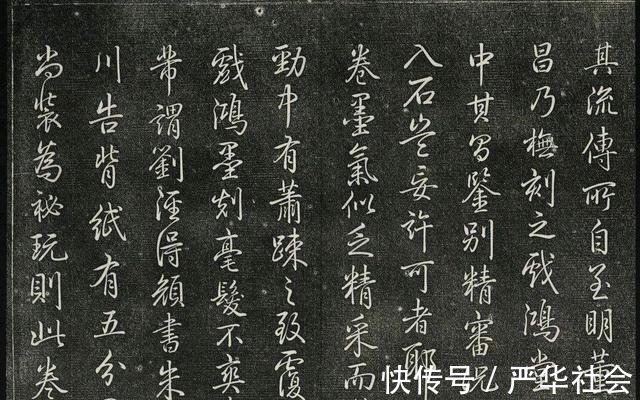 其流傳所自至明董
昌乃橅刻之戲鴻堂
中其昌鑒別精審況
入石豈妄許可者耶
卷墨氣似乏精采而
勁中有蕭疎之致覆
戲鴻墨刻毫髮不爽
芾謂劉涇得顏書朱
川告背紙有五分
尚裝為祕玩則此卷
快传号 / 严华社会